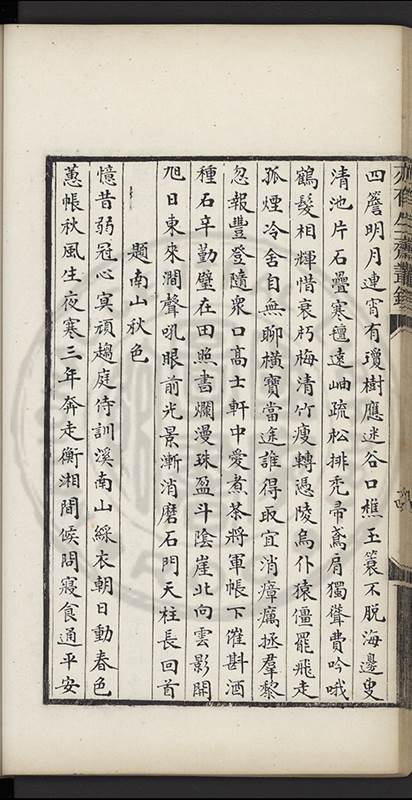 四簷明月連宵有瓊樹應迷谷口樵玉蓑不脫海邊叟
清池片石疊寒氊遠岫疏松排禿帚鳶肩獨聳費吟哦
鶴髮相輝惜衰朽梅清竹瘦轉憑陵烏仆猿僵罷飛走
孤煙冷舍自無聊橫寶當途誰得取宜消瘴癘拯羣黎
忽報豐登隨衆口高士軒中愛煮茶將軍帳下催斟酒
種石辛勤璧在田照書爛漫珠盈斗陰崖北向雲影開
旭日東來澗聲吼眼前光景漸消磨石門天柱長回首
題南山秋色
憶昔弱冠心冥頑趨庭侍訓溪南山綵衣朝日動春色
蕙帳秋風生夜寒三年奔走衡湘間候問寢食通平安